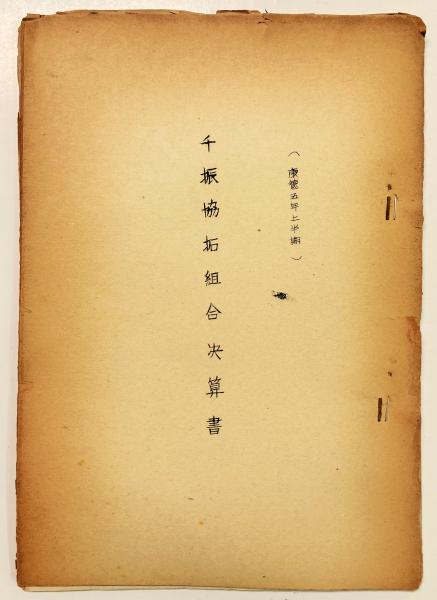 （康徳五年上半期）
千振協拓組合决算書